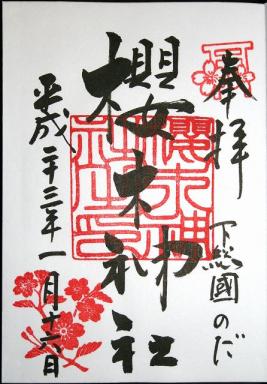 奉拝
下総國のだ
櫻木神社
櫻木神
社之印
平成二十三年一月十六日